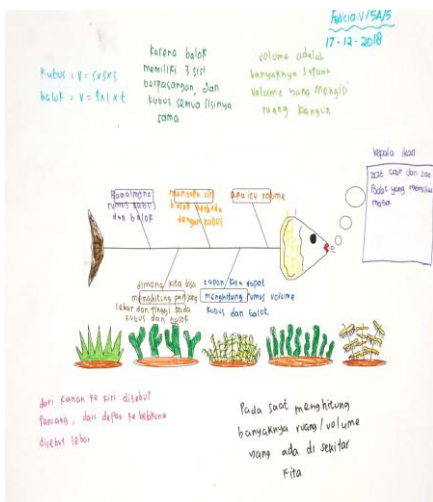 Felicia V/5A/5
17-12-2018
Kubus = V = s x s x s
balok = V = p x l x t
karena balok
memiliki 3 sisi
berpasangan, dan
kubus semua sisinya
sama
volume adalah
banyaknya satuan
volume yang mengisi
ruang bangun
kepala ikan
zat cair dan zat
Padat yang memiliki
masa
Bagaimana
rumus kubus
dan balok
mengapa ciri
balok berbeda
dengan kubus
apa itu volume
dimana kita bisa
menghitung panjang
lebar dan tinggi pada
kubus dan balok
kapan kita dapat
menghitung rumus volume
kubus dan balok
dari kanan ke kiri disebut
Panjang, dari depan ke belakang
disebut lebar
Pada saat menghitung
banyaknya ruang/volume
yang ada di sekitar
kita